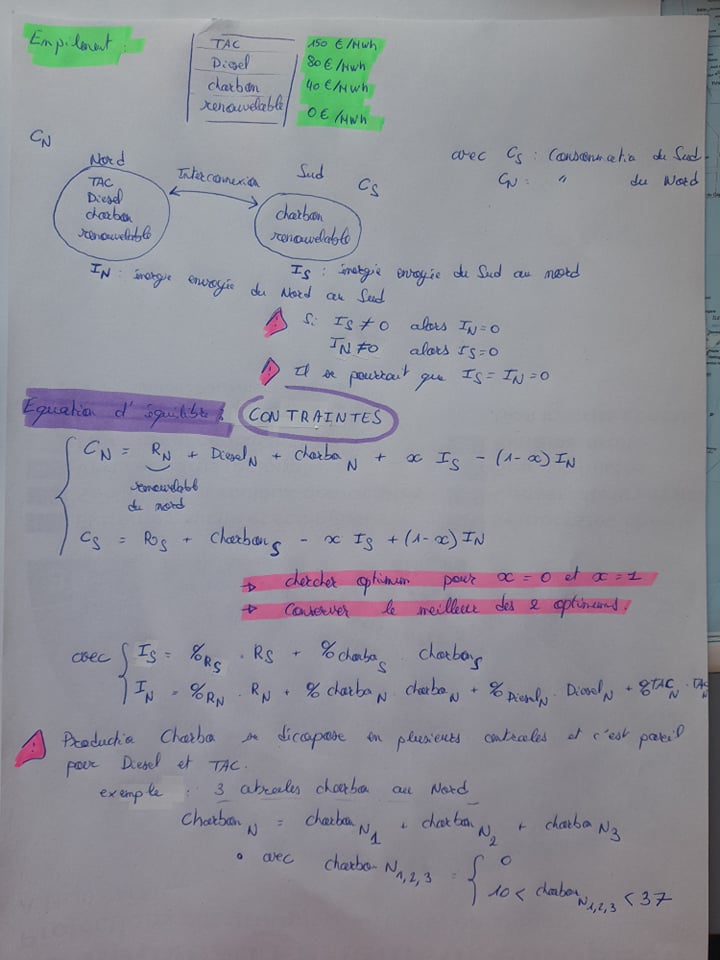 Empilement :
TAC 150 €/MWh
Diesel 80 €/MWh
charbon 40 €/MWh
renouvelable 0 €/MWh
C_N
avec C_S : Consommation du Sud
C_N : " du Nord
Nord Interconnexion Sud C_S
TAC
Diesel
charbon
renouvelable
charbon
renouvelable
I_N : énergie envoyée du Nord au Sud
I_S : énergie envoyée du Sud au nord
Si I_S ≠ 0 alors I_N = 0
I_N ≠ 0 alors I_S = 0
Il se pourrait que I_S = I_N = 0
Equation d'équilibre : CONTRAINTES
C_N = R_N + Diesel_N + charbon_N + x I_S - (1-x) I_N
renouvelable
du nord
C_S = R_S + Charbon_S - x I_S + (1-x) I_N
→ chercher optimum pour x = 0 et x = 1
→ Conserver le meilleur des 2 optimums.
avec I_S = %R_S . R_S + % charbon_S . charbon_S
I_N = %R_N . R_N + % charbon_N . charbon_N + % Diesel_N . Diesel_N + % TAC_N . TAC_N
Production Charbon se décompose en plusieurs centrales et c'est pareil
pour Diesel et TAC.
exemple : 3 centrales charbon au Nord
Charbon_N = charbon_N1 + charbon_N2 + charbon_N3
• avec charbon_N1,2,3 = { 0
10 < charbon_N1,2,3 < 37